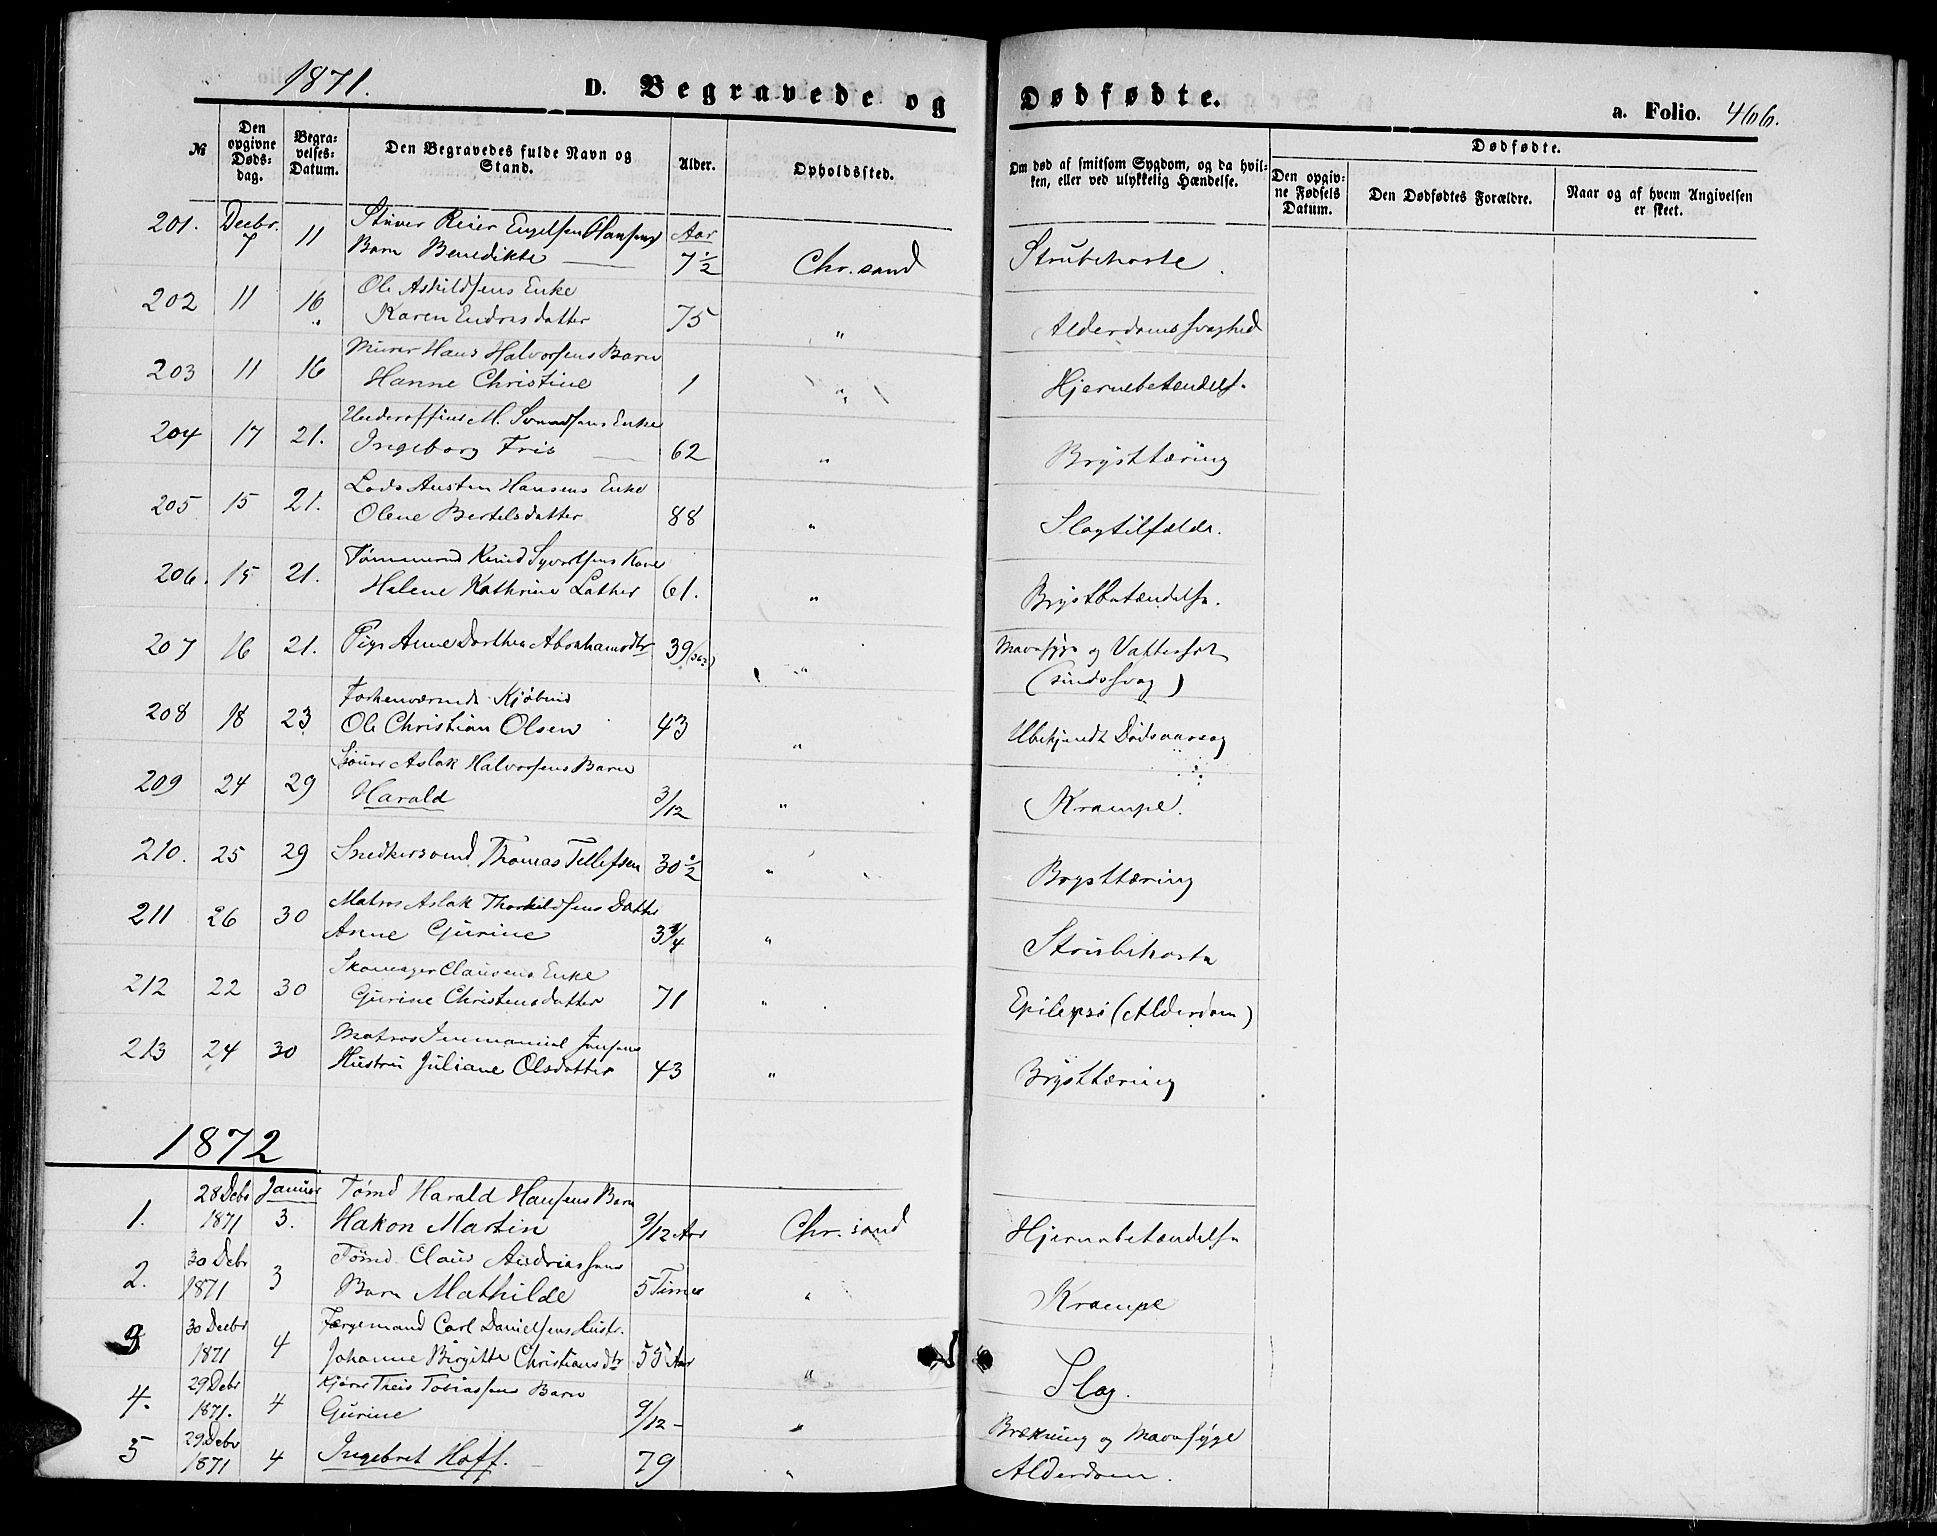 1871.
D. Begravede og Dødfødte.
a. Folio. 466.
№ | Den opgivne Døds-dag. | Begra-velses-Datum. | Den Begravedes fulde Navn og Stand. | Alder. | Opholdssted. | Om død af smitsom Sygdom, og da hvil-ken, eller ved ulykkelig Hændelse. | Dødfødte. Den opgiv-ne Fødsels Datum. | Den Dødfødtes Forældre. | Naar og af hvem Angivelsen er skeet.
201. Decbr. 7 11 Stuver Reier Engelsen Hansens Aar
Barn Benedikte 7½ Chr.sand Strubehoste.
202 11 16 Ole Askildsens Enke
Karen Endresdatter 75 " Alderdomssvaghed
203 11 16 Murer Hans Halvorsens Barn
Hanne Christine 1 " Hjernebetændels.
204 17 21. Underofficer M. Svendsens Enke
Ingeborg Friis 62 " Brysttæring
205 15 21. Lods Austen Hansens Enke
Olene Bertelsdatter 88 " Slagtilfælde.
206. 15 21. Tømmermd Knud Syvertsens Kone
Helene Kathrine Lather 61. " Brystbetændelse.
207 16 21. Pige Anne Dorthea Abrahamsdtr 39 " Mavesyge og Vattersot
(sindssvag)
208 18 23 Ole Christian Olsen 43 " Ubekjendt Dødsaarsag
209 24 29 Aslak Halvorsens Barn
Harald 3/12 " Krampe.
210. 25 29 Snedkersvend Thomas Tellefsen 30½ " Brysttæring
211 26 30 Matros Aslak Thorkildsens Datter
Anne Gurine 3¾ " Strubehoste
212 22 30 Skomager Clausens Enke
Gurine Christensdatter 71 " Epilepsi (Alderdom)
213 24 30 Matros Immanuel Jansens
Hustru Juliane Olsdatter 43 " Brysttæring
1872
1. 28 Debr 1871 Januar 3. Tømd Harald Hansens Barn
Hakon Martin 9/12 Aar Chr.sand Hjernebetændelse
2. 30 Debr 1871 3 Tømd. Claus Andreassens
Barn Mathilde 5 Timer " Krampe
3 30 Decbr 1871 4 Færgemand Carl Danielsens Hustr.
Johanne Birgitte Christiansdtr 55 Aar " Slag.
4. 29 Debr 1871. 4 Tobiassens Barn
Gurine 9/12 - " Brækning og Mavesyge
5 29 Debr 1871 4 Ingebret Hoff. 79 " Alderdom.